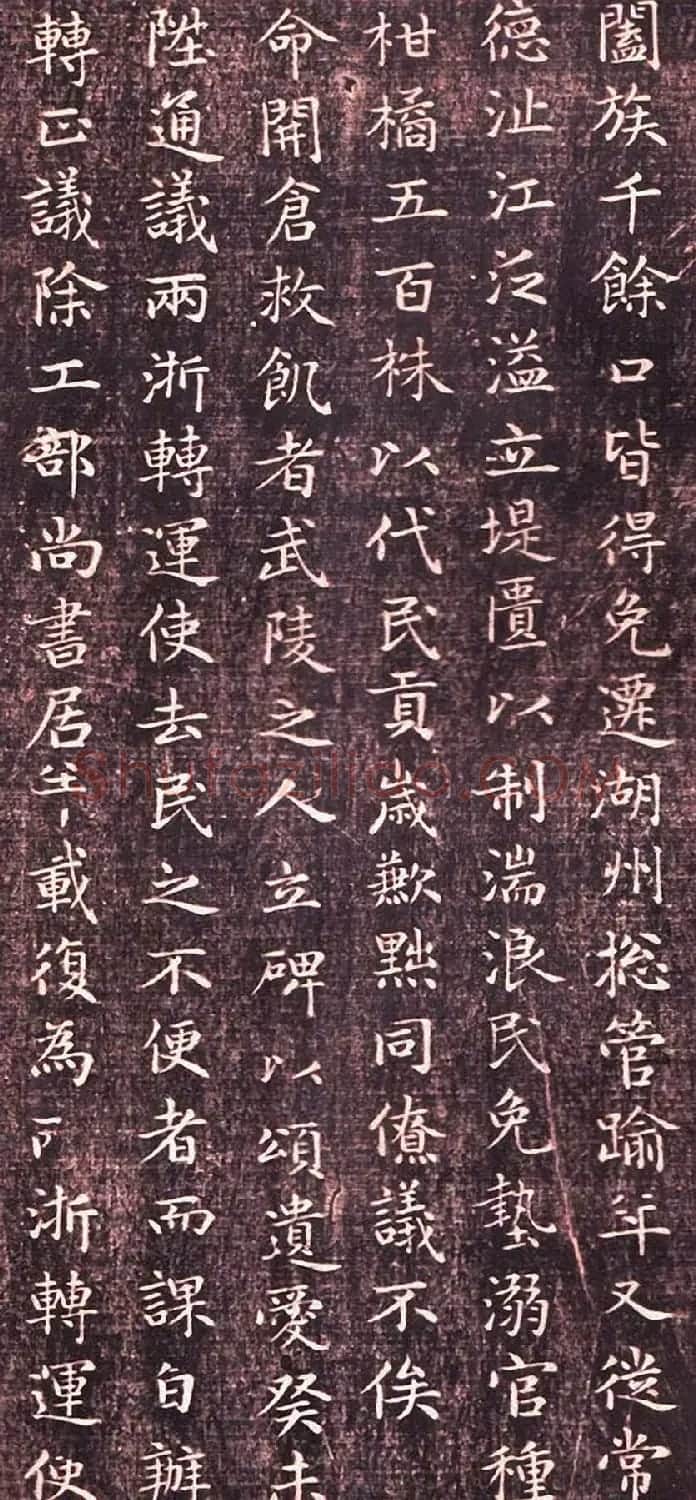 闔族千餘口皆得免遷湖州捴管踰年又從常
德沚江泛溢立堤匱以制湍浪民免墊溺官種
柑橘五百株以代民貢歲歉黜同僚議不俟
命開倉救飢者武陵之人立碑以頌遺愛癸未
陞通議兩浙轉運使去民之不便者而課自辦
轉正議除工部尚書居半載復為兩浙轉運使
shufaziliao.COM